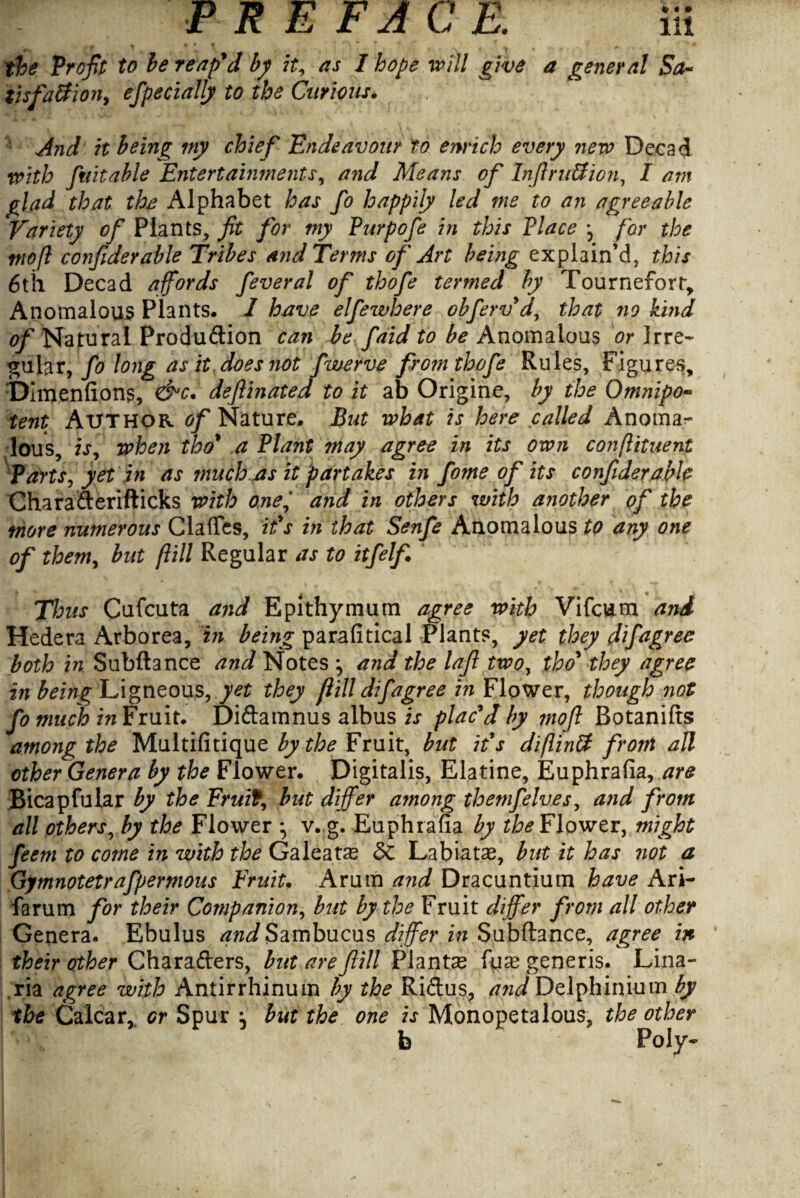 PREFACE. iii
the Profit to be reap'd by it, as I hope will give a general Sa-
tisfaction, especially to the Curious.
And it being my chief Endeavour to enrich every new Decad
with suitable Entertainments, and Means of Instruction, I am
glad that the Alphabet has so happily led me to an agreeable
Variety of Plants, fit for my Purpose in this Place ; for the
most considerable Tribes and Terms of Art being explain'd, this
6th Decad affords several of those termed by Tournefort,
Anomalous Plants. I have elsewhere observ'd, that no kind
of Natural Production can be said to be Anomalous or Irre-
gular, so long as it does not swerve from those Rules, Figures,
Dimensions, &c. destinated to it ab Origine, by the Omnipo-
tent AUTHOR of Nature. But what is here called Anoma-
lous, is, when tho' a Plant may agree in its own constituent
Parts, yet in as much as it partakes in some of its considerable
Characteristicks with one, and in others with another of the
more numerous Classes, it's in that Sense Anomalous to any one
of them, but still Regular as to itself.
Thus Cuscuta and Epithymum agree with Viscum and
Hedera Arborea, in being parasitical Plants, yet they disagree
both in Substance and Notes ; and the last two, tho' they agree
in being Ligneous, yet they still disagree in Flower, though not
so much in Fruit. Dictamnus albus is plac'd by most Botanists
among the Multisitique by the Fruit, but it's distinct from all
other Genera by the Flower. Digitalis, Elatine, Euphrasia, are
Bicapsular by the Fruit, but differ among themselves, and from
all others, by the Flower ; v. g. Euphrasia by the Flower, might
seem to come in with the Galeatæ & Labiatæ, but it has not a
Gymnotetraspermous Fruit. Arum and Dracuntium have Ari-
sarum for their Companion, but by the Fruit differ from all other
Genera. Ebulus and Sambucus differ in Substance, agree in
their other Characters, but are still Plantæ suæ generis. Lina-
ria agree with Antirrhinum by the Rictus, and Delphinium by
the Calcar, or Spur ; but the one is Monopetalous, the other
b Poly-